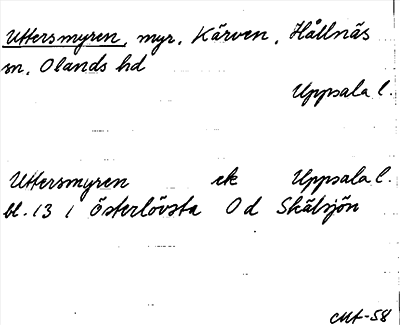 Uttersmyren, myr, Kärven, Hållnäs
sn, Olands hd
Uppsala l.
Uttersmyren ek Uppsala l.
bl. 13 i Österlövsta Od Skälsjön
CMt-58